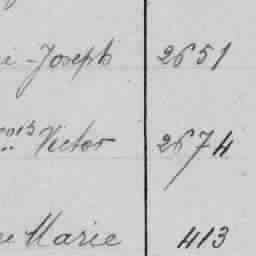 -Joseph 2651
Victor 2674
Marie 413